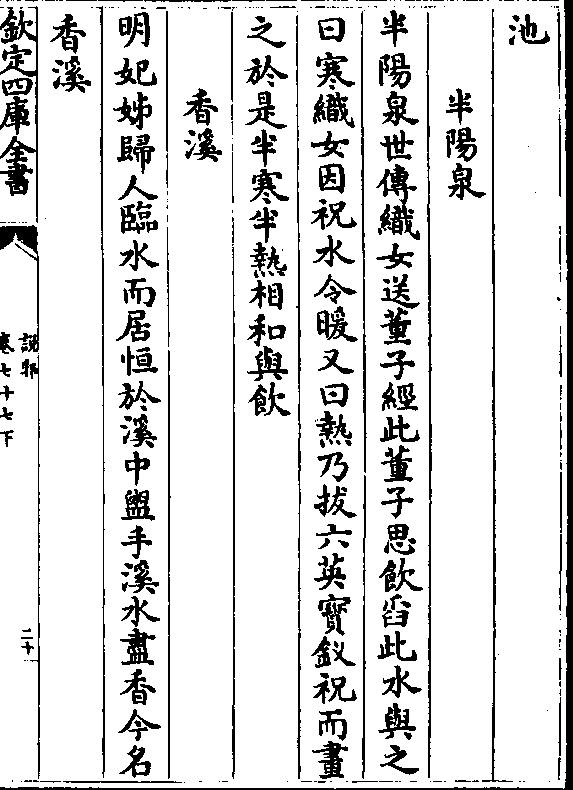 池
半陽泉
半陽泉世傳織女送董子經此董子思飲舀此水與之
曰寒織女因祝水令暖又曰熱乃拔六英寳釵祝而畫
之於是半寒半熱相和與飲
香溪
明妃姊歸人臨水而居恒於溪中盥手溪水盡香今名
香溪
欽定四庫全書
說郛
卷七十七下
二十